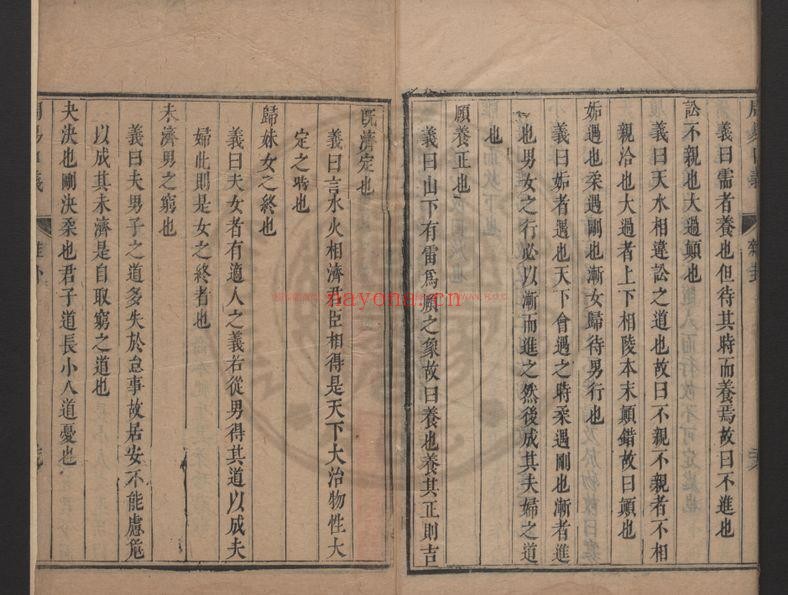 義曰需者養也但待其時而養焉故曰不進也
訟不親也大過顛也
義曰天水相違訟之道也故曰不親不親者不相
親洽也大過者上下相陵本末顛錯故曰顛也
姤遇也柔遇剛也漸女歸待男行也
義曰姤者遇也天下會遇之時柔遇剛也漸者進
也男女之行必以漸而進之然後成其夫婦之道
也
頤養正也
義曰山下有雷爲頤之象故曰養也養其正則吉
既濟定也
義曰言水火相濟君臣相得是天下大治物性大
定之時也
歸妹女之終也
義曰夫女者有適人之義右從男得其道以成夫
婦此則是女之終者也
未濟男之窮也
義曰夫男子之道多失於怠事故居安不能慮危
以成其未濟是自取窮之道也
夬決也剛決柔也君子道長小人道憂也
nayona.cn